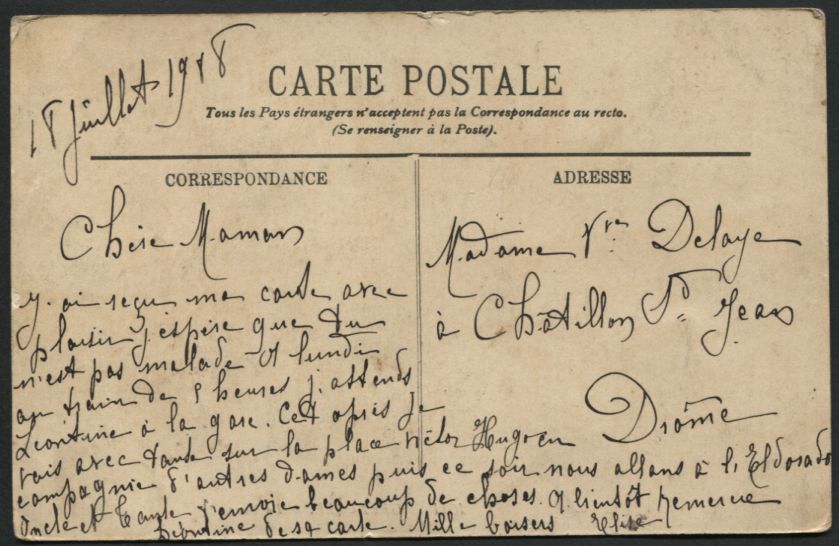 18 Juillet 1918
CARTE POSTALE
Tous les Pays étrangers n'acceptent pas la Correspondance au recto.
(Se renseigner à la Poste).
CORRESPONDANCE
Chère Maman
J'ai reçu ma carte avec
plaisir j'espère que tu
n'est pas malade A lundi
au train de 5 heures j'attends
Léontine à la gare. Cet après je
vais avec tante sur la place Victor Hugo en
compagnie d'autres dames puis ce soir nous allons à l'Eldorado
Oncle et tante t'envoie beaucoup de choses. A bientôt remercie
Léontine de sa carte. Mille baisers Elise
ADRESSE
Madame Vve Delaye
à Châtillon St Jean
Drôme